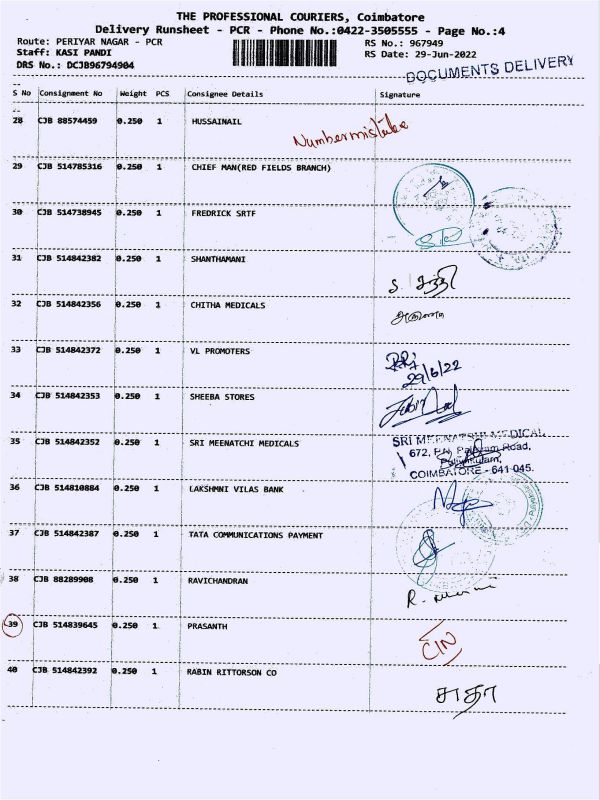 THE PROFESSIONAL COURIERS, Coimbatore
Delivery Runsheet - PCR - Phone No.:0422-3505555 - Page No.:4
Route: PERIYAR NAGAR - PCR RS No.: 967949
Staff: KASI PANDI RS Date: 29-Jun-2022
DRS No.: DCJB96794904
DOCUMENTS DELIVERY
S No Consignment No Weight PCS Consignee Details Signature
28 CJB 88574459 0.250 1 HUSSAINAIL
Number mistake
29 CJB 514785316 0.250 1 CHIEF MAN(RED FIELDS BRANCH)
30 CJB 514738945 0.250 1 FREDRICK SRTF
31 CJB 514842382 0.250 1 SHANTHAMANI
32 CJB 514842356 0.250 1 CHITHA MEDICALS
33 CJB 514842372 0.250 1 VL PROMOTERS
29/6/22
34 CJB 514842353 0.250 1 SHEEBA STORES
35 CJB 514842352 0.250 1 SRI MEENATCHI MEDICALS
SRI MEENATCHI MEDICAL
672, Road,
COIMBATORE - 641 045.
36 CJB 514810884 0.250 1 LAKSHMNI VILAS BANK
37 CJB 514842387 0.250 1 TATA COMMUNICATIONS PAYMENT
38 CJB 88289908 0.250 1 RAVICHANDRAN
39 CJB 514839645 0.250 1 PRASANTH
40 CJB 514842392 0.250 1 RABIN RITTORSON CO